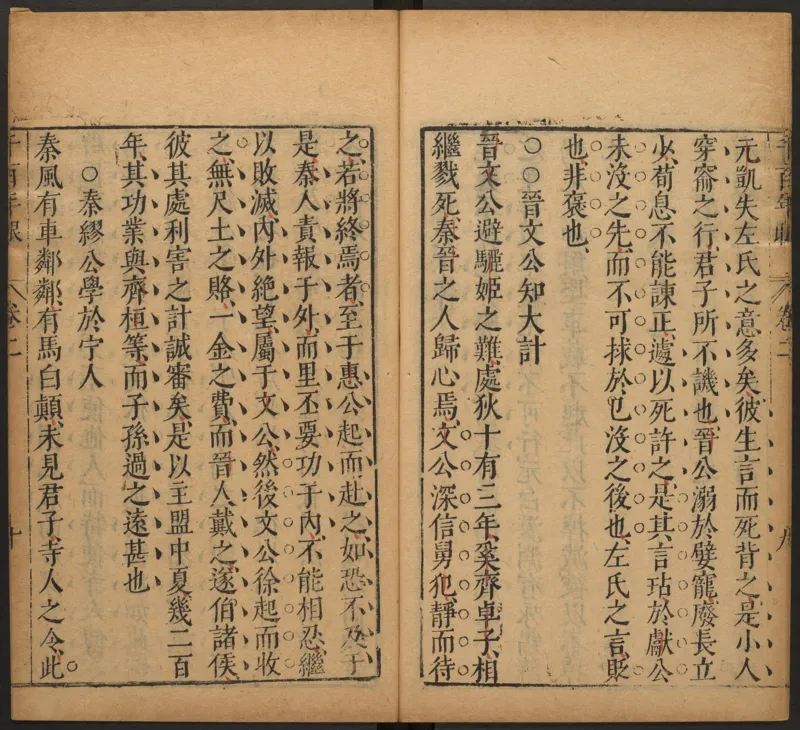 元凱失左氏之意多矣彼生言而死背之是小人
穿窬之行君子所不譏也晉公溺於嬖寵廢長立
少荀息不能諫正遽以死許之是其言玷於獻公
未沒之先而不可捄於已沒之後也左氏之言貶
也非褒也
○○晉文公知大計
晉文公避驪姬之難處狄十有三年奚齊卓子相
繼戮死秦晉之人歸心焉文公深信舅犯靜而待
之若將終焉者至于惠公起而赴之如恐不及于
是秦人責報于外而里丕要功于內不能相忍繼
以敗滅內外絕望屬于文公然後文公徐起而收
之無尺土之賂一金之費而晉人戴之遂伯諸侯
彼其處利害之計誠審矣是以主盟中夏幾二百
年其功業與齊桓等而子孫過之遠甚也
○秦繆公學於宁人
秦風有車鄰鄰有馬白顛未見君子寺人之令此
千百年眼 卷二 十
卷二 九